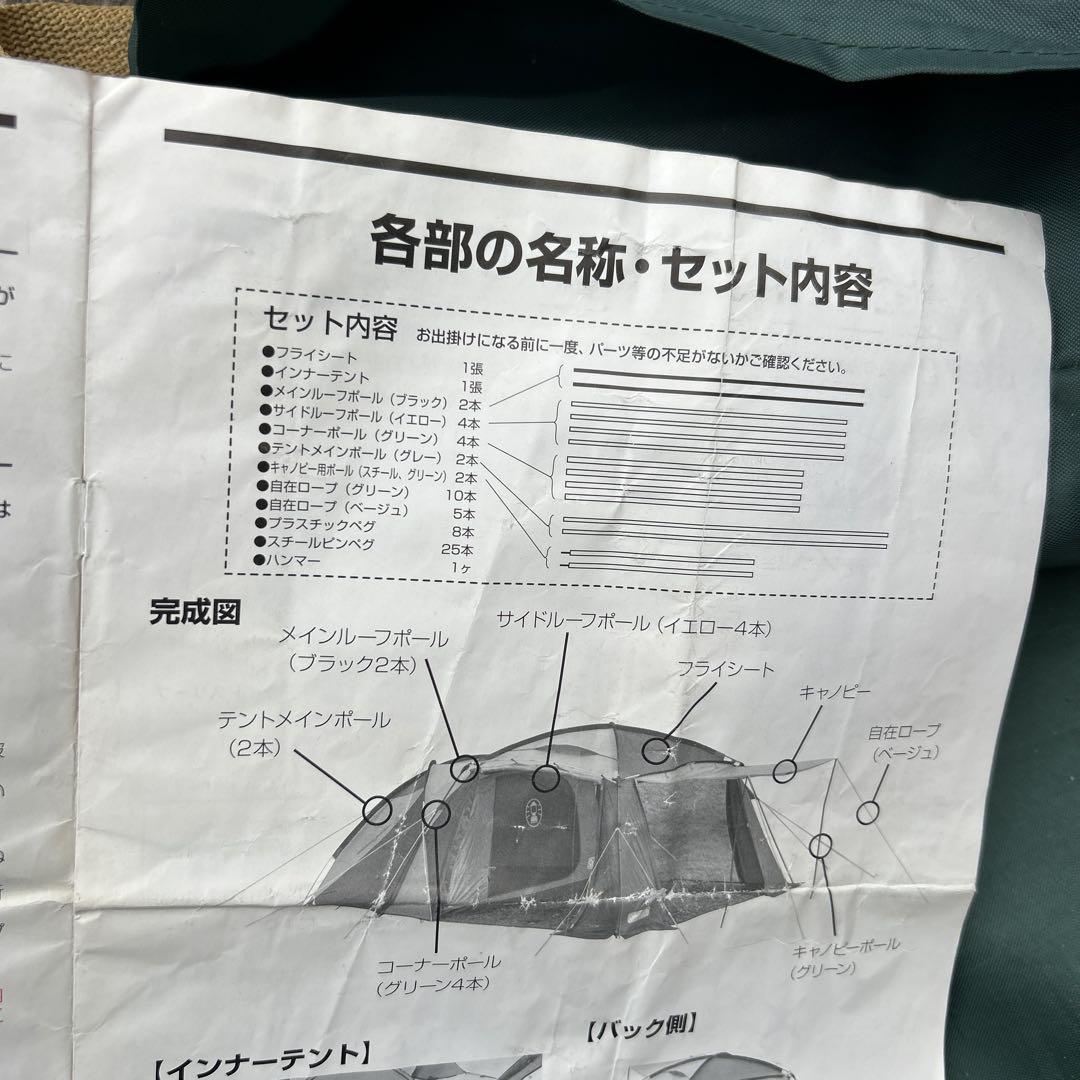 各部の名称・セット内容
セット内容 お出掛けになる前に一度、パーツ等の不足がないかご確認ください。
●フライシート 1張
●インナーテント 1張
●メインルーフポール（ブラック） 2本
●サイドルーフポール（イエロー） 4本
●コーナーポール（グリーン） 4本
●テントメインポール（グレー） 2本
●キャノピー用ポール（スチール、グリーン） 2本
●自在ロープ（グリーン） 10本
●自在ロープ（ベージュ） 5本
●プラスチックペグ 8本
●スチールピンペグ 25本
●ハンマー 1ヶ
完成図
メインルーフポール
（ブラック2本）
サイドルーフポール（イエロー4本）
フライシート
キャノピー
自在ロープ
（ベージュ）
テントメインポール
（2本）
コーナーポール
（グリーン4本）
キャノピーポール
（グリーン）
【インナーテント】
【バック側】
が
こ
は
い
ね